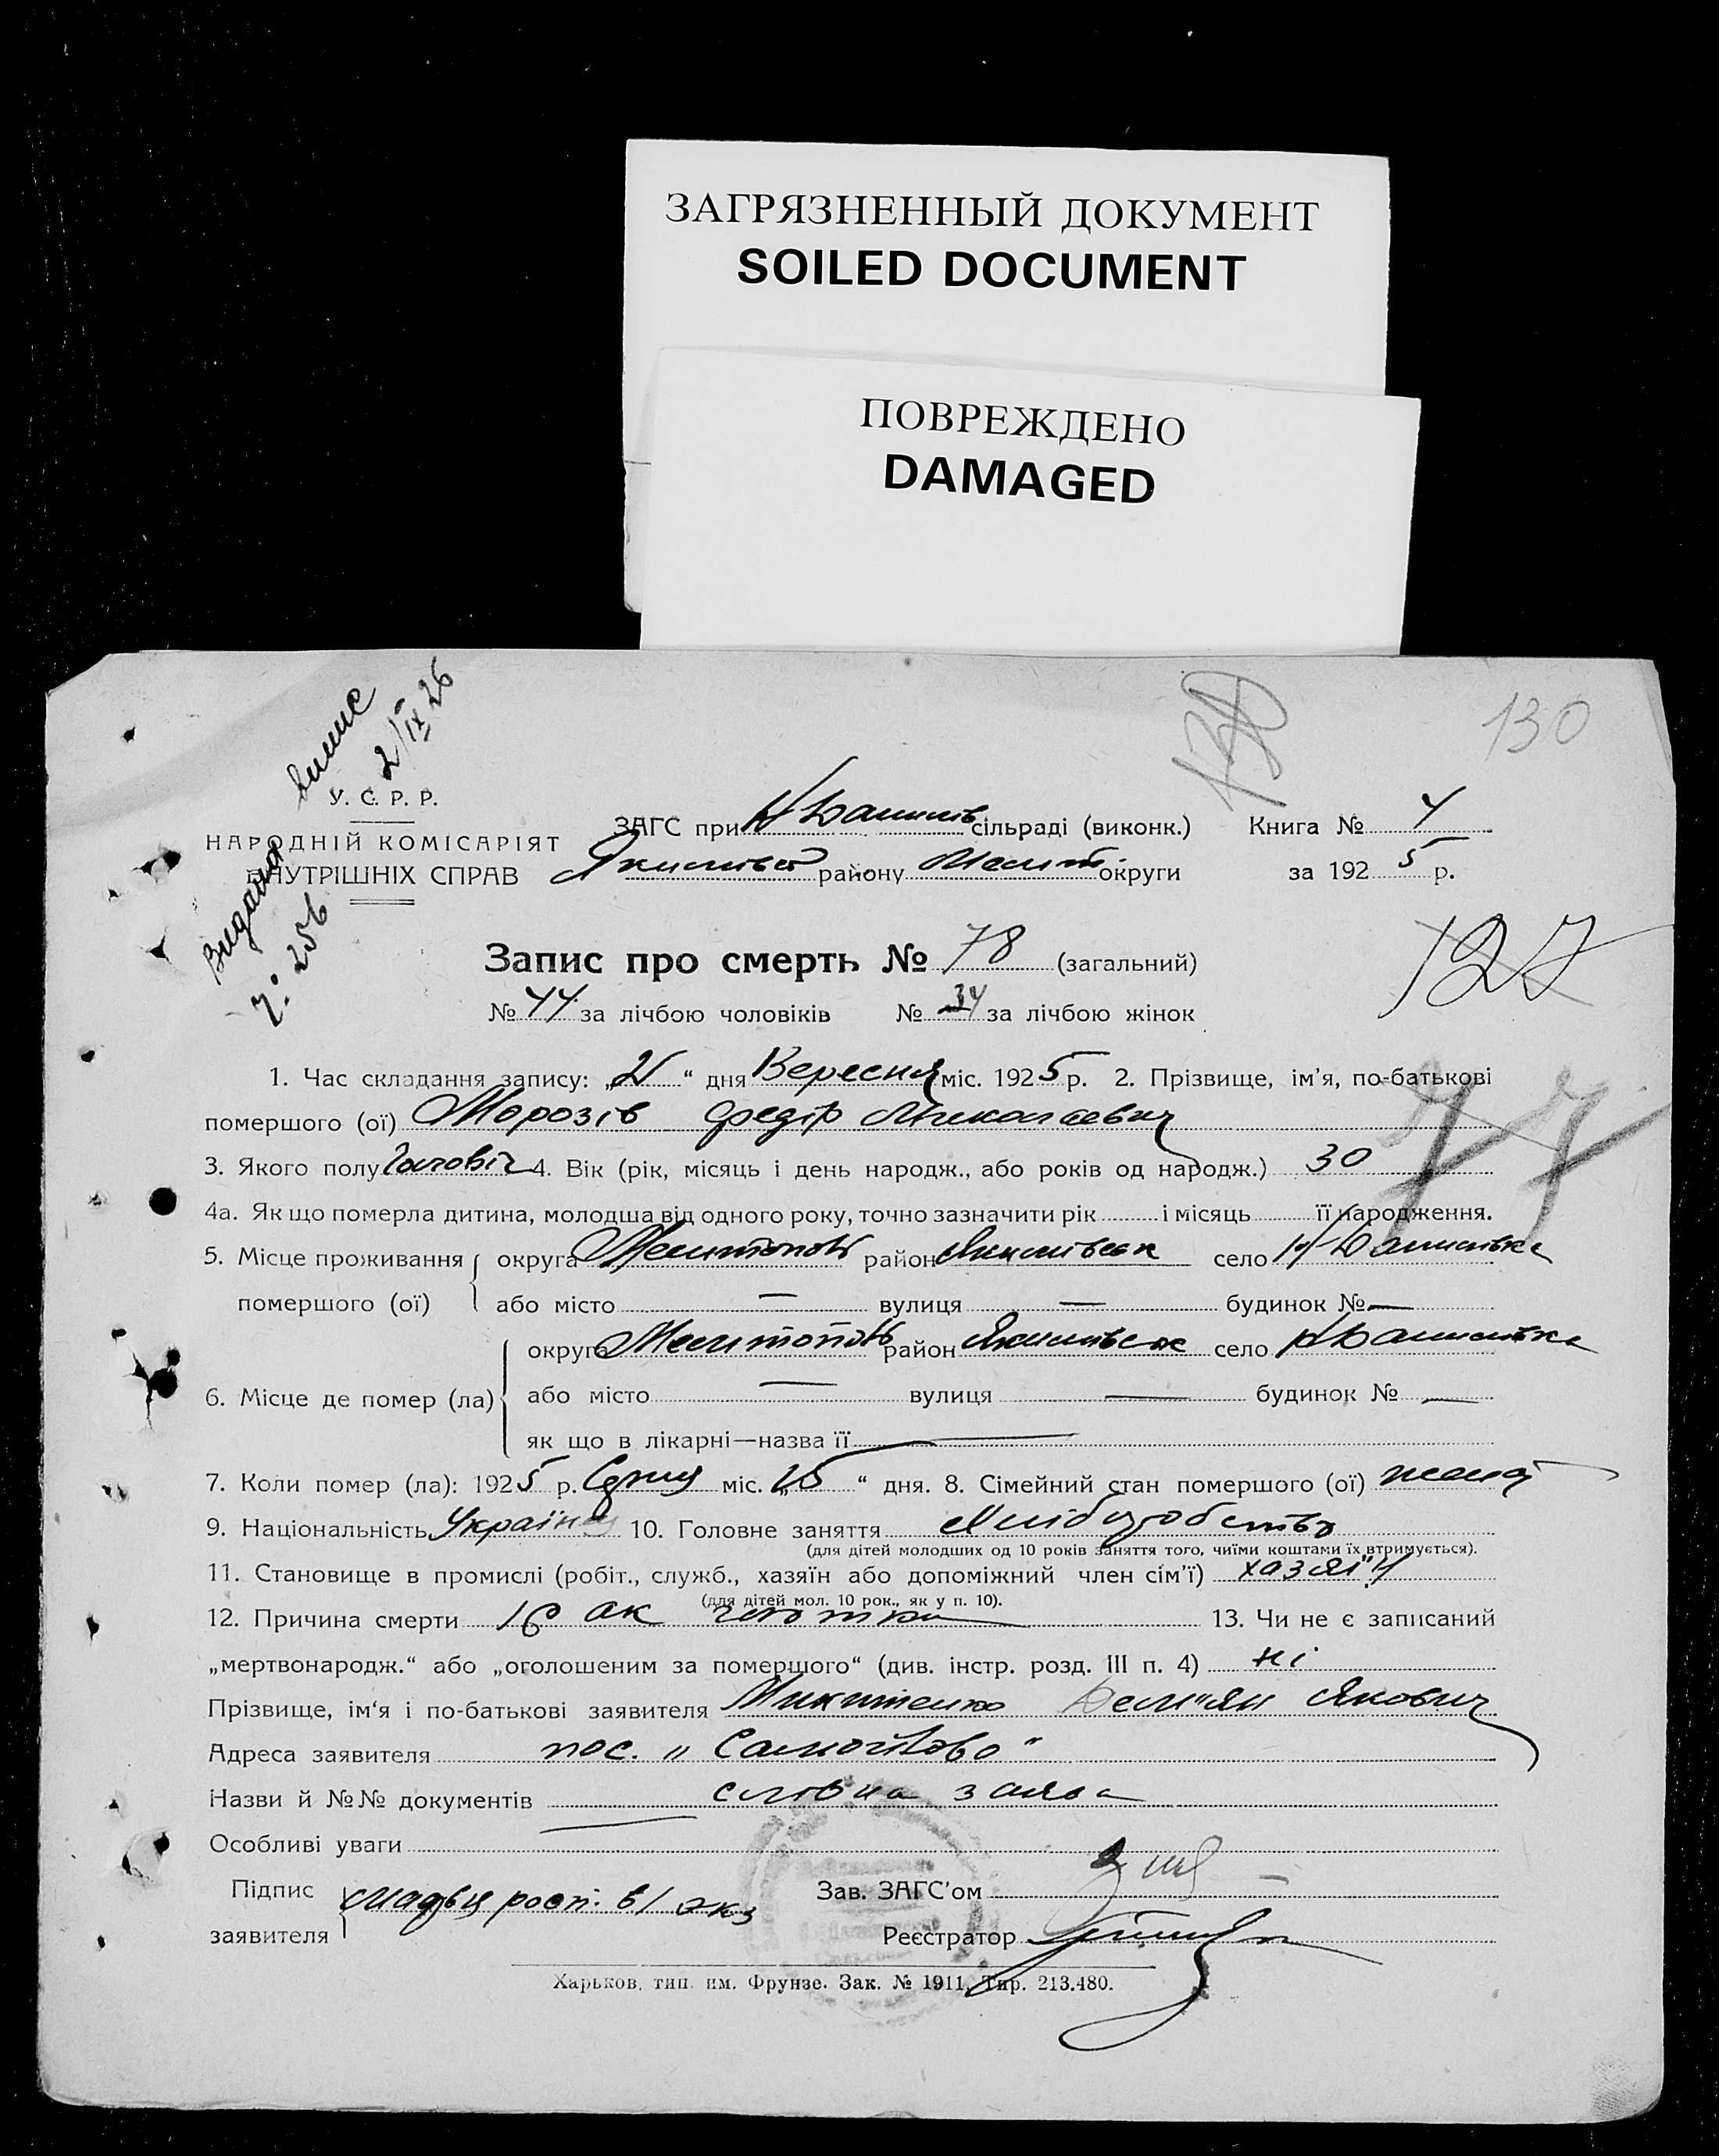 ЗАГРЯЗНЕННЫЙ ДОКУМЕНТ
SOILED DOCUMENT
ПОВРЕЖДЕНО
DAMAGED
130
130
Видана випис
2/IX 26
ч: 256
У. С. Р. Р.
НАРОДНІЙ КОМІСАРІЯТ
ВНУТРІШНІХ СПРАВ
ЗАГС при сільраді (виконк.) Книга № 4
району Мелит. округи за 1925 р.
127
Запис про смерть № 78 (загальний)
№ 44 за лічбою чоловіків № 34 за лічбою жінок
77
1. Час складання запису: „ “ дня Вересня міс. 1925 р. 2. Прізвище, ім’я, по-батькові
помершого (ої) Морозів Федір Миколаевич
3. Якого полу Чоловіч 4. Вік (рік, місяць і день народж., або років од народж.) 30
4а. Як що померла дитина, молодша від одного року, точно зазначити рік і місяць її народження.
5. Місце проживання округа Мелитопов район Якимівськ село Н/Данилівка
помершого (ої) або місто — вулиця — будинок № —
округа Мелитопов район Якимівськ село Н/Данилівка
6. Місце де помер (ла) або місто — вулиця — будинок № —
як що в лікарні—назва її —
7. Коли помер (ла): 1925 р. Серпня міс. „25“ дня. 8. Сімейний стан помершого (ої)
9. Національність Українец 10. Головне заняття Хліборобство
(для дітей молодших од 10 років заняття того, чиїми коштами їх втримується).
11. Становище в промислі (робіт., служб., хазяїн або допоміжний член сім’ї) хазяїн
(для дітей мол. 10 рок., як у п. 10).
12. Причина смерти 13. Чи не є записаний
„мертвонародж.“ або „оголошеним за помершого“ (див. інстр. розд. III п. 4) ні
Прізвище, ім‘я і по-батькові заявителя Микитенко Дем"ян Якович
Адреса заявителя пос. "Самойлово"
Назви й №№ документів словна заява
Особливі уваги
Підпис Зав. ЗАГС’ом
заявителя Реєстратор
Харьков, тип. им. Фрунзе. Зак. № 1911. Тир. 213.480.